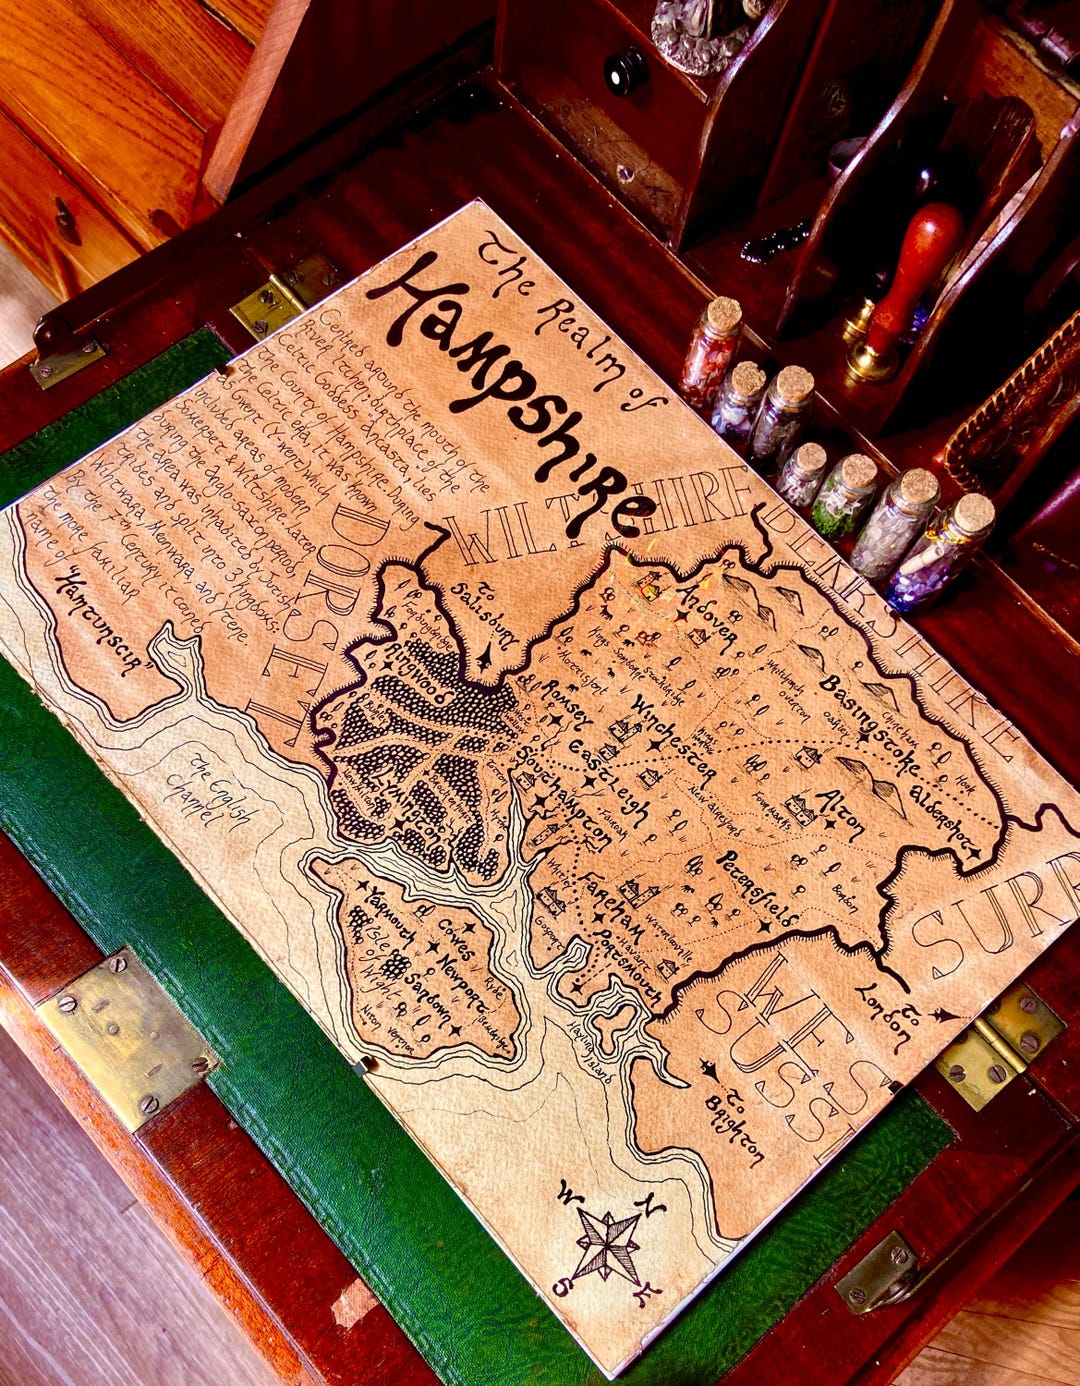 The Realm of
Hampshire
Centred around the mouth of the
River Itchen; birthplace of the
Celtic Goddess ancasta, lies
The County of Hampshire. During
the Celtic era, it was known
as Gwent (Y-went) Which
included areas of modern
Somerset & Wiltshire. Later,
during the Anglo-Saxon period,
the area was inhabited by Jutish
tribes and split into 3 kingdoms:
Wihtwara, Meonwara, and Ytene.
By the 7th Century it copied
the more familiar
name of
"Hamtunscir"
DORSET
WILTSHIRE
BERKSHIRE
SURR
WES
SUSS
To
Salisbury
To
London
To
Brighton
The English
Channel
Fordingbridge
Ringwood
Lymington
Andover
Kings Somborne
Stockbridge
Horrisfont
Romsey
Winchester
Eastleigh
Southampton
Whitchurch
Overton
Oakley
Basingstoke
Hook
Aldershot
Alton
Four Marks
New Alresford
Petersfield
Bordon
Fareham
Gosport
Waterlooville
Havant
Portsmouth
Hayling Island
Yarmouth
Isle of
Wight
Cowes
Newport
Ryde
Sandown
Bembridge
Niton
Ventnor
N
E
S
W